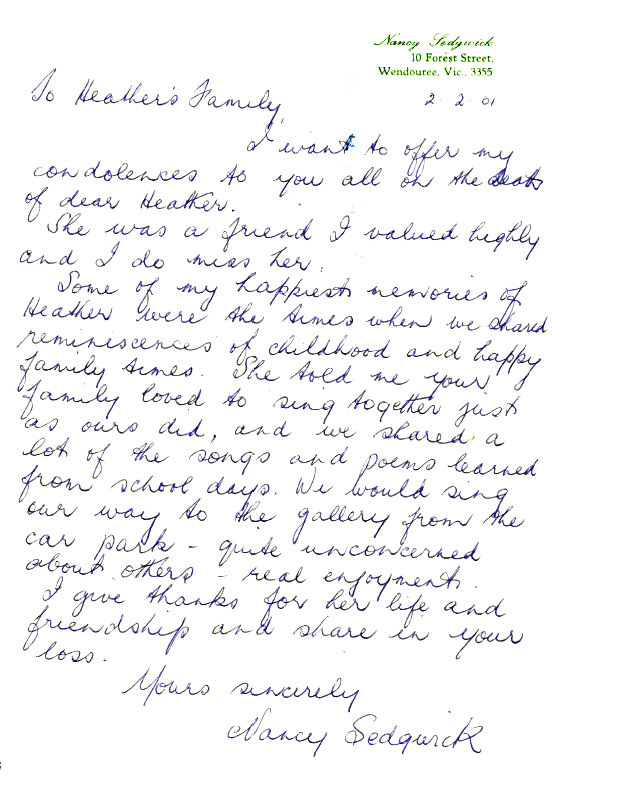 Nancy Sedgwick
10 Forest Street,
Wendouree, Vic., 3355
To Heather's Family,
2.2.01
I want to offer my
condolences to you all on the death
of dear Heather.
She was a friend I valued highly
and I do miss her.
Some of my happiest memories of
Heather were the times when we shared
reminiscences of childhood and happy
family times. She told me your
family loved to sing together just
as ours did, and we shared a
lot of the songs and poems learned
from school days. We would sing
our way to the gallery from the
car park - quite unconcerned
about others - real enjoyment.
I give thanks for her life and
friendship and share in your
loss.
Yours sincerely
Nancy Sedgwick